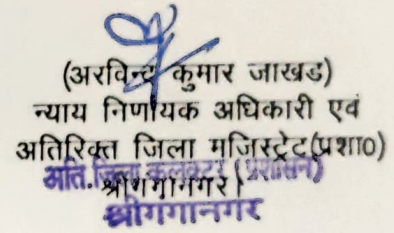 (अरविन्द कुमार जाखड)
न्याय निर्णायक अधिकारी एवं
अतिरिक्त जिला मजिस्ट्रेट(प्रशा०)
अति. जिला कलक्टर (प्रशासन)
श्रीगंगानगर।
श्रीगंगानगर